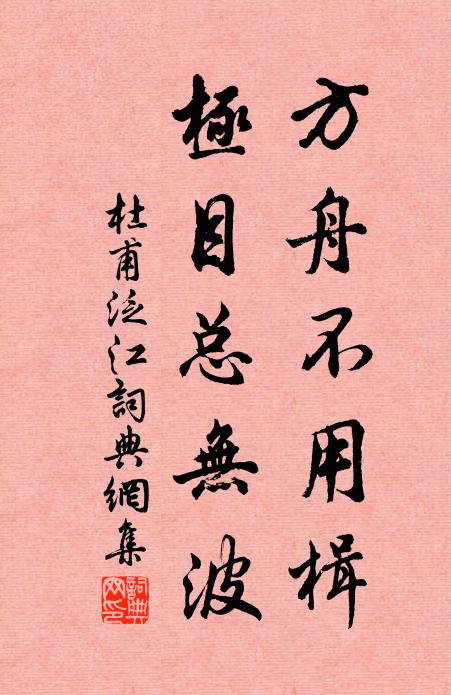 方舟不用楫
極目总無波
杜甫泛江詞典網集
詞典網印